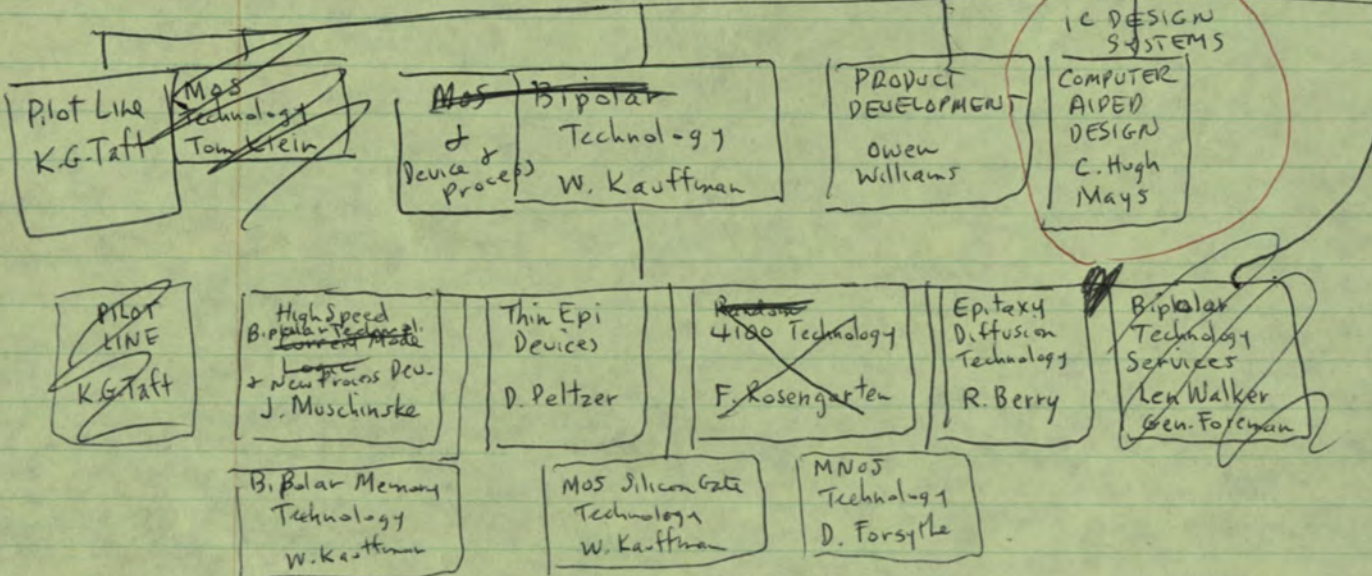 IC DESIGN
SYSTEMS
Pilot Line
K.G.Taft
MOS
Technology
Tom Klein
MOS
&
Device &
process
Bipolar
Technology
W. Kauffman
PRODUCT
DEVELOPMENT
Owen
Williams
COMPUTER
AIDED
DESIGN
C. Hugh
Mays
PILOT
LINE
K.G.Taft
High Speed
Bipolar Technol.
Current Mode
Logic
& New Process Dev.
J. Muschinske
Thin Epi
Devices
D. Peltzer
Random
4100 Technology
F. Rosengarten
Epitaxy
Diffusion
Technology
R. Berry
Bipolar
Technology
Services
Len Walker
Gen. Foreman
Bipolar Memory
Technology
W. Kauffman
MOS Silicon Gate
Technology
W. Kauffman
MNOS
Technology
D. Forsythe